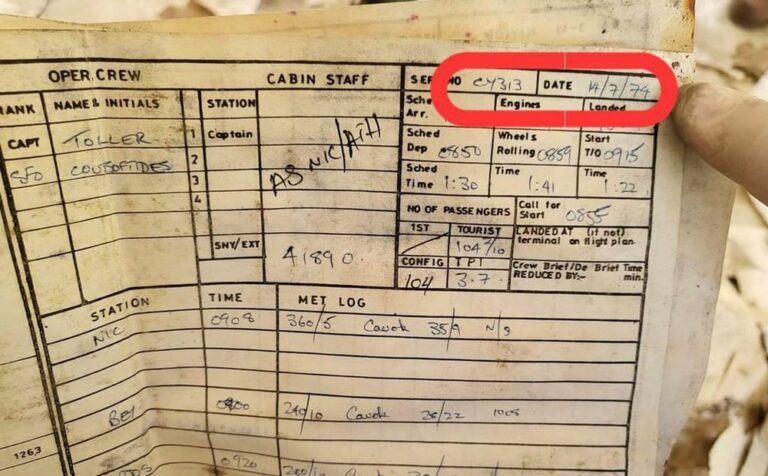 OPER. CREW CABIN STAFF SER NO CY313 DATE 14/7/74
RANK NAME & INITIALS STATION Sched Arr. Engines Landed
CAPT TOLLER 1 Captain Sched Dep 0850 Wheels Rolling 0859 Start T/O 0915
SFO 2
3 AS NIC/ATH Sched Time 1:30 Time 1:41 Time 1:22
4
NO OF PASSENGERS Call for Start 0855
1ST TOURIST LANDED AT (if not)
104/10 terminal on flight plan.
SNY/EXT 41890. CONFIG TPT Crew Brief/De Brief Time
104 3.7. REDUCED BY:- min.
STATION TIME MET LOG
NIC 0908 360/5 Cavok 35/9 N/S
BEY 0800 240/10 Cavok 28/22 1008
126,3
0920